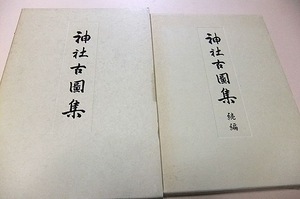 神社古圖集
神社古圖集
続編